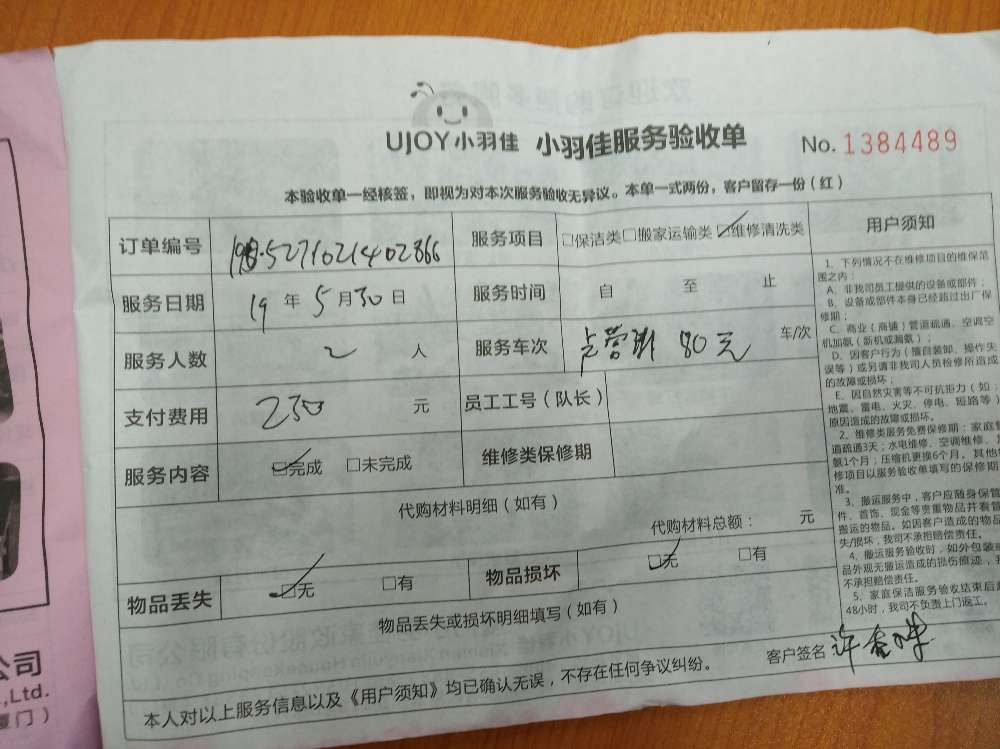 UJOY小羽佳 小羽佳服务验收单 No. 1384489
本验收单一经核签，即视为对本次服务验收无异议。本单一式两份，客户留存一份（红）
订单编号 服务项目 □保洁类□搬家运输类☑维修清洗类 用户须知
服务日期 19 年 5 月 30 日 服务时间 自 至 止
服务人数 2 人 服务车次 80元 车/次
支付费用 230 元 员工工号（队长）
服务内容 ☑完成 □未完成 维修类保修期
代购材料明细（如有）
代购材料总额： 元
物品丢失 ☑无 □有 物品损坏 ☑无 □有
物品丢失或损坏明细填写（如有）
本人对以上服务信息以及《用户须知》均已确认无误，不存在任何争议纠纷。 客户签名
1、下列情况不在维修项目的维保范
围之内：
A、非我司员工提供的设备或部件；
B、设备或部件本身已经超过出厂保
修期；
C、商业（商铺）管道疏通、空调空
机加氨（新机或漏氨）；
D、因客户行为（擅自装卸、操作失
误等）或另请非我司人员检修所造成
的故障或损坏；
E、因自然灾害等不可抗拒力（如：
地震、雷电、火灾、停电、短路等）
原因造成的故障或损坏。
2、维修类服务免费保修期：家庭管
道疏通3天；水电维修、空调维修、
氨1个月；压缩机更换6个月。其他
修项目以服务验收单填写的保修期
准。
3、搬运服务中，客户应随身保管
件、首饰、现金等贵重物品并看管
搬运的物品。如因客户造成的物品
失/损坏，我司不承担赔偿责任。
4、搬运服务验收时，如外包装或
品外观无搬运造成的损伤痕迹，我
不承担赔偿责任。
5、家庭保洁服务验收结束后超
48小时，我司不负责上门返工。
公司
,Ltd.
厦门）